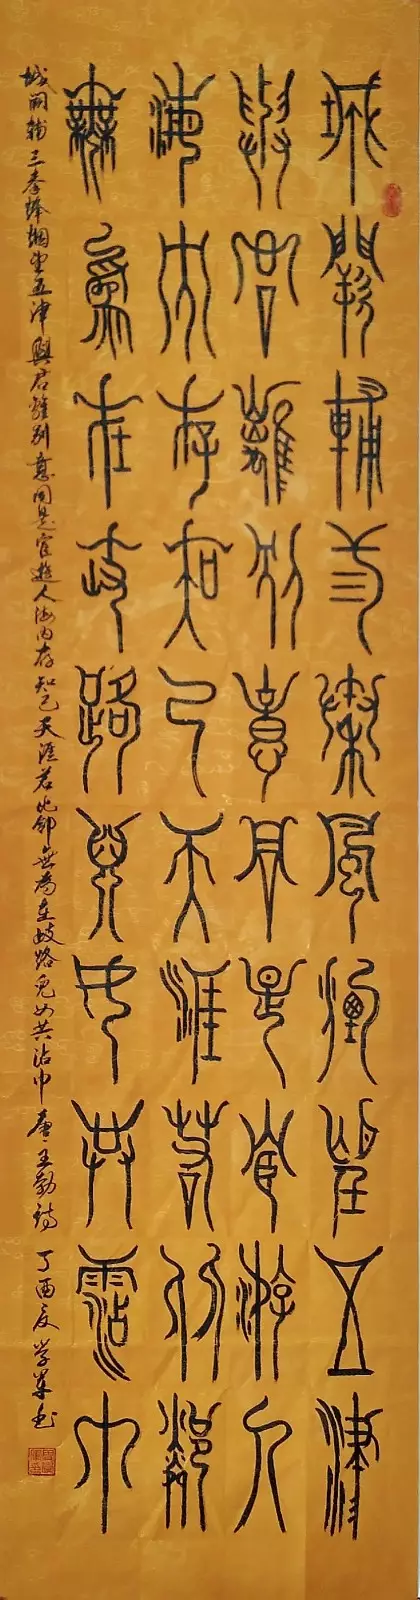 城闕輔三秦風煙望五津
與君離別意同是宦游人
海内存知己天涯若比鄰
無爲在歧路兒女共霑巾
城闕輔三秦烽烟望五津與君離別意同是宦遊人海内存知己天涯若比鄰無為在歧路兒女共沾巾 唐王勃詩 丁酉夏 学军书